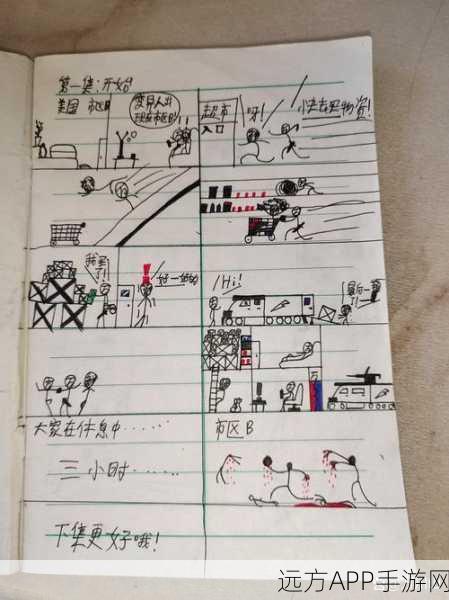 第一集:开始!
美国 市区
变异人出现在市区B!!
超市
入口
呀!
快去买物资!
我来了!
Hi!
最后一章了!
大家在休息中······
三小时······
市区B
下集更好哦!
远方APP手游网